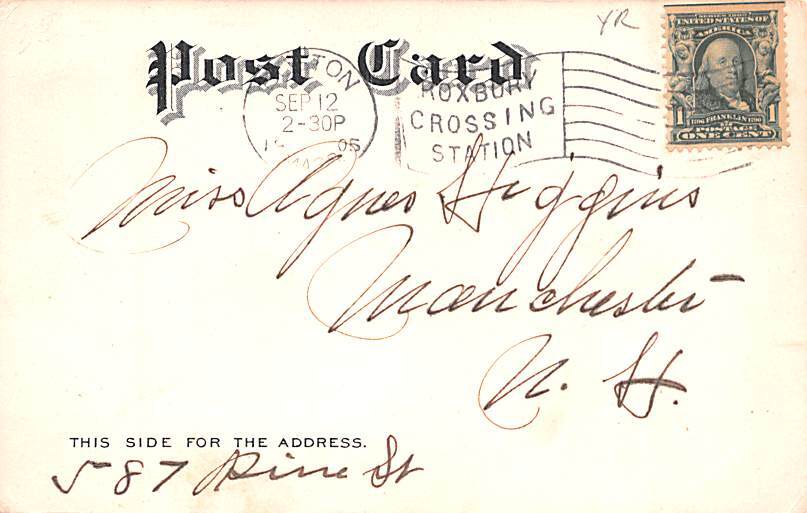 YR
Post Card
SERIES 1902
UNITED STATES OF
AMERICA
1 1706 FRANKLIN 1790 1
POSTAGE
ONE CENT
TON
SEP 12
2-30P
05
ROXBURY
CROSSING
STATION
Miss Agnes Higgins
Manchester
N. H.
THIS SIDE FOR THE ADDRESS.
587 Pine St